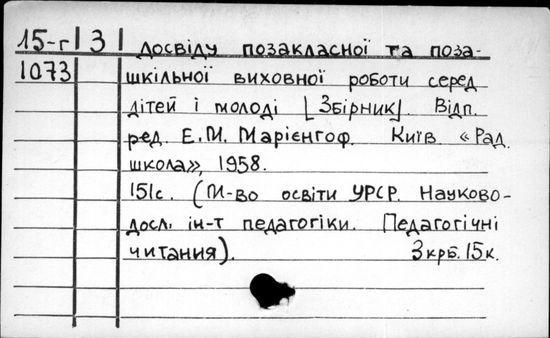 15-г 3 досвіду позакласної та поза-
1073 шкільної виховної роботи серед
дітей і молоді [Збірник]. Відп.
ред. Е.М. Марієнгоф. Київ. «Рад.
школа», 1958.
151с. (М-во освіти УРСР. Науково-
досл. ін-т педагогіки. Педагогічні
читання). 3крб.15к.